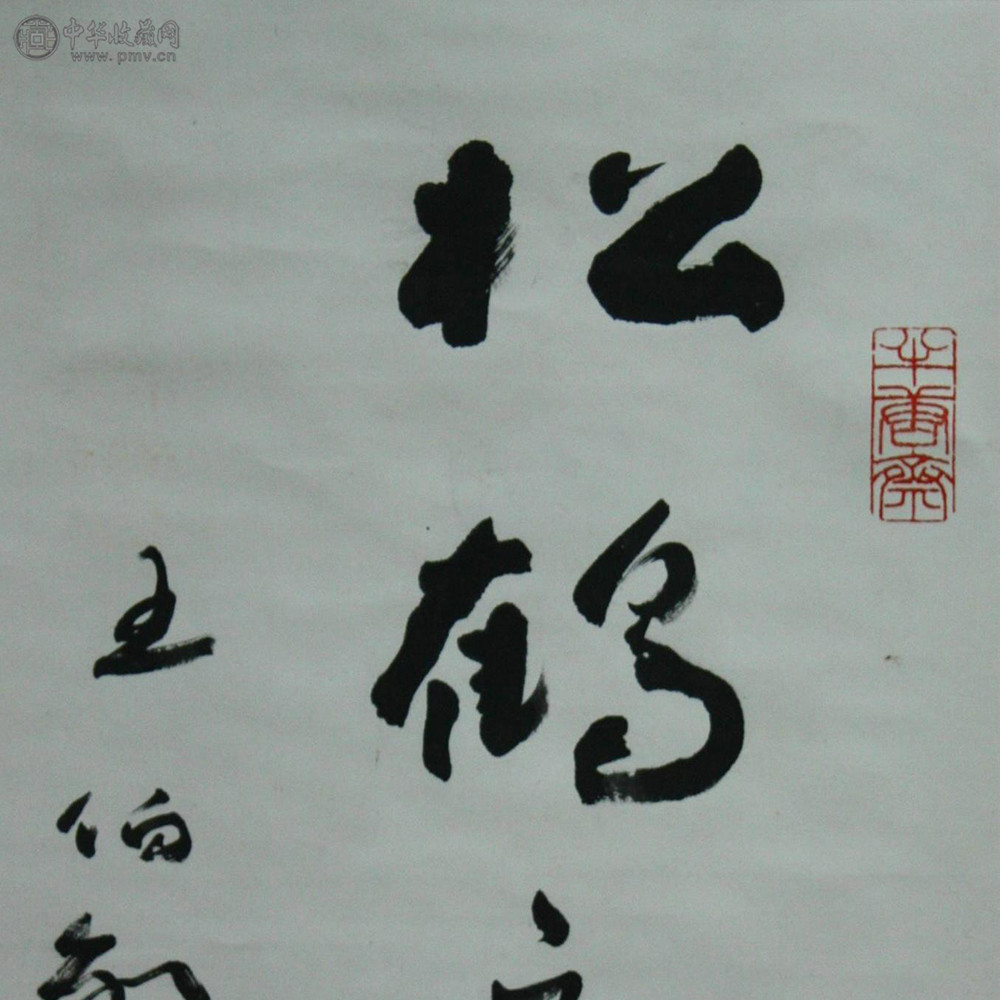 中华收藏网
www.pmv.cn
松鹤
王伯敏
半唐斋